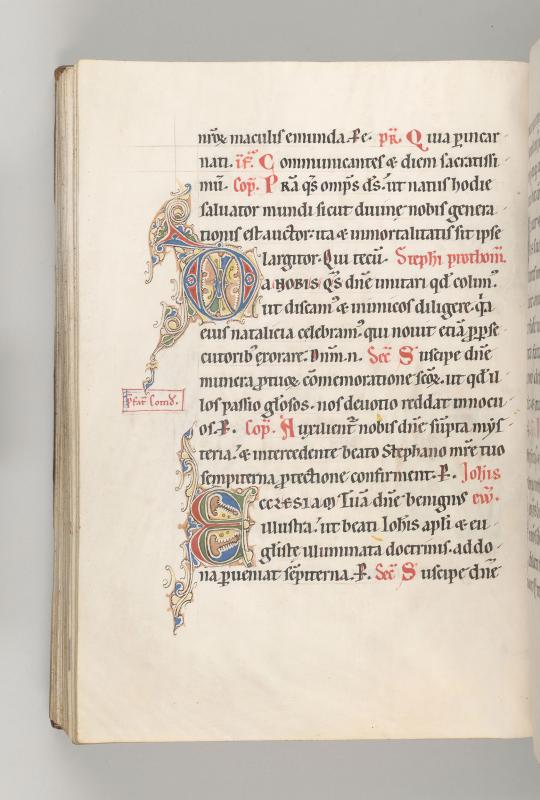 nr̄oꝝ maculis emunda. P̄e. pr̄. Quia ꝑ incar
nati. īf. Communicantes & diem sacratissi
mū. Cōp. Prā qs̄ om̄ps ds̄. ut natus hodie
saluator mundi sicut diuine nobis genera
tionis est auctor: ita & inmortalitatis sit ipse
largitor. Qui tecū. Stephi prothom̄.
Da nobis qs̄ dn̄e imitari qd̄ colimꝰ.
ut discamꝰ & inimicos diligere. q̄a
eius natalicia celebramꝰ. qui nouit etiā ꝓ ꝑse
cutoribꝰ exorare. Dn̄m. n. Sec̄ Suscipe dn̄e
munera ꝓ tuoꝝ cōmemoratione scōꝝ. ut qd̄ il
los passio glōsos. nos deuotio reddat innocu
os. P̄. Cōp. Auxilient̄ nobis dn̄e sūpta mys
teria. & intercedente beato Stephano mr̄e tuo
sempiterna ꝓtectione confirment. P̄. Joh̄is
Ecclesiam tuā dn̄e benignus ew̄.
illustra. ut beati Joh̄is apl̄i & eu
gl̄iste illuminata doctrinis. ad do
na ꝑueniat sēpiterna. P̄. Sec̄ Suscipe dn̄e